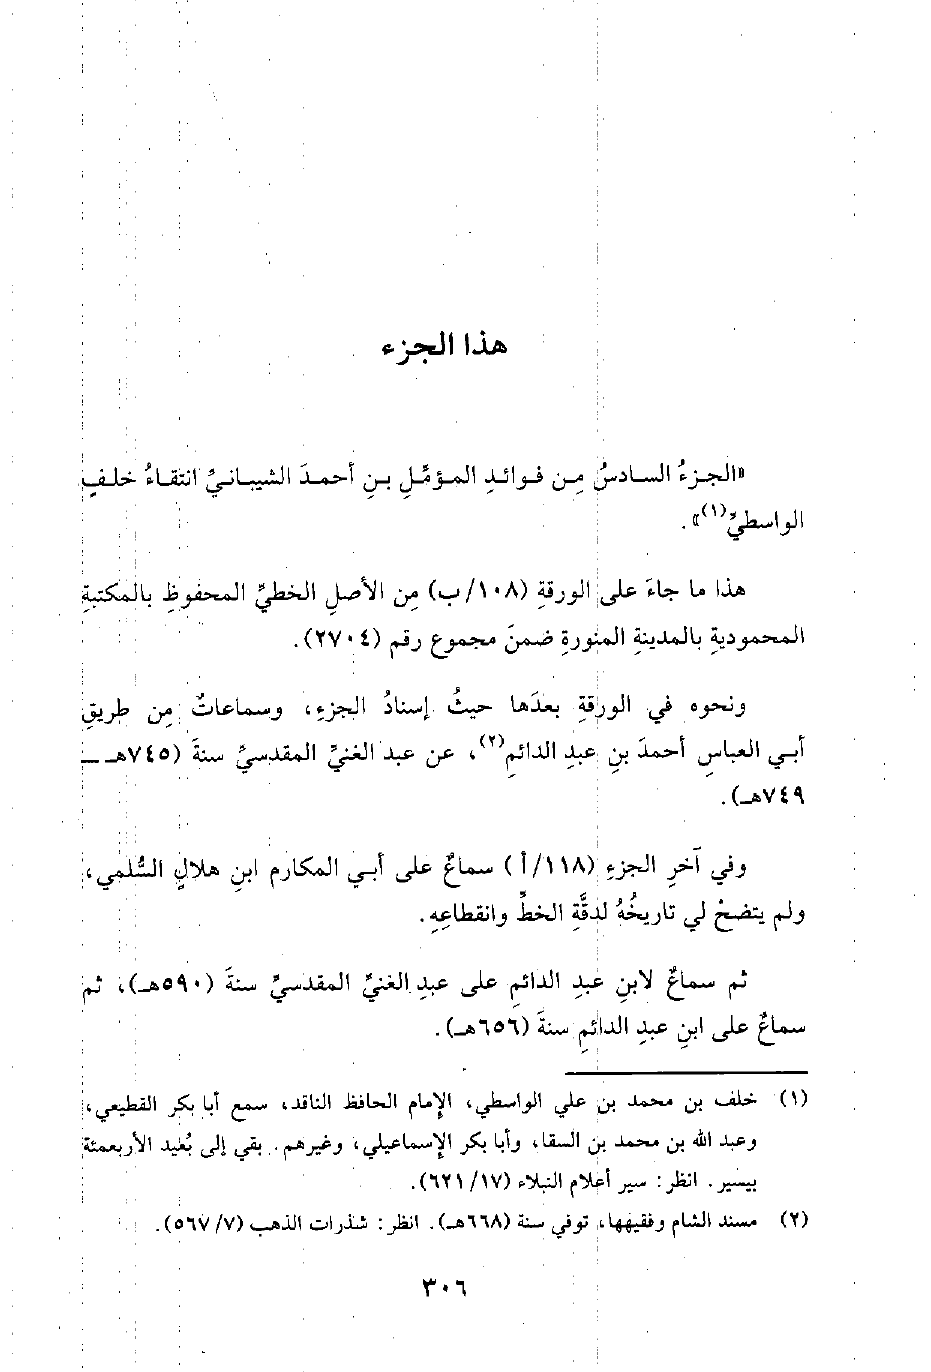 هذا الجزء
«الجزءُ السادسُ مِن فوائدِ المؤمَّلِ بنِ أحمدَ الشيبانيِّ انتقاءُ خلفٍ
الواسطيِّ(١)».
هذا ما جاءَ على الورقةِ (١٠٨/ب) مِن الأصلِ الخطيِّ المحفوظِ بالمكتبةِ
المحموديةِ بالمدينةِ المنورةِ ضمنَ مجموع رقم (٢٧٠٤).
ونحوه في الورقةِ بعدَها حيثُ إسنادُ الجزءِ، وسماعاتٌ مِن طريقِ
أبي العباسِ أحمدَ بنِ عبدِ الدائمِ(٢)، عن عبد الغنيِّ المقدسيِّ سنةَ (٧٤٥هـ ـ
٧٤٩هـ).
وفي آخرِ الجزءِ (١١٨/أ) سماعٌ على أبي المكارم ابنِ هلالٍ السُّلمي،
ولم يتضحْ لي تاريخُهُ لدقَّةِ الخطِّ وانقطاعِهِ.
ثم سماعٌ لابنِ عبدِ الدائمِ على عبدِ الغنيِّ المقدسيِّ سنةَ (٥٩٠هـ)، ثم
سماعٌ على ابنِ عبدِ الدائمِ سنةَ (٦٥٦هـ).
(١) خلف بن محمد بن علي الواسطي، الإمام الحافظ الناقد، سمع أبا بكر القطيعي،
وعبد الله بن محمد بن السقا، وأبا بكر الإسماعيلي، وغيرهم. بقي إلى بُعَيد الأربعمئة
بيسير. انظر: سير أعلام النبلاء (١٧/ ٦٢١).
(٢) مسند الشام وفقيهها، توفي سنة (٦٦٨هـ). انظر: شذرات الذهب (٧/ ٥٦٧).
٣٠٦